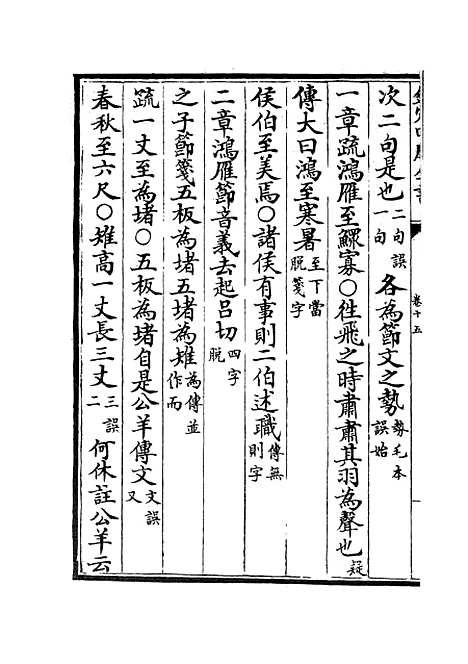 卷十五
次二句是也二句誤一句各為節文之勢勢毛本誤始
一章疏鴻雁至鰥寡○徃飛之時肅肅其羽為聲也疑
傳大曰鴻至寒暑至下當脱箋字
侯伯至美焉○諸侯有事則二伯述職傳無則字
二章鴻雁節音義去起吕切四字脱
之子節箋五板為堵五堵為雉為傳並作而
疏一丈至為堵○五板為堵自是公羊傳文文誤又
春秋至六尺○雉高一丈長三丈三誤二何休註公羊云